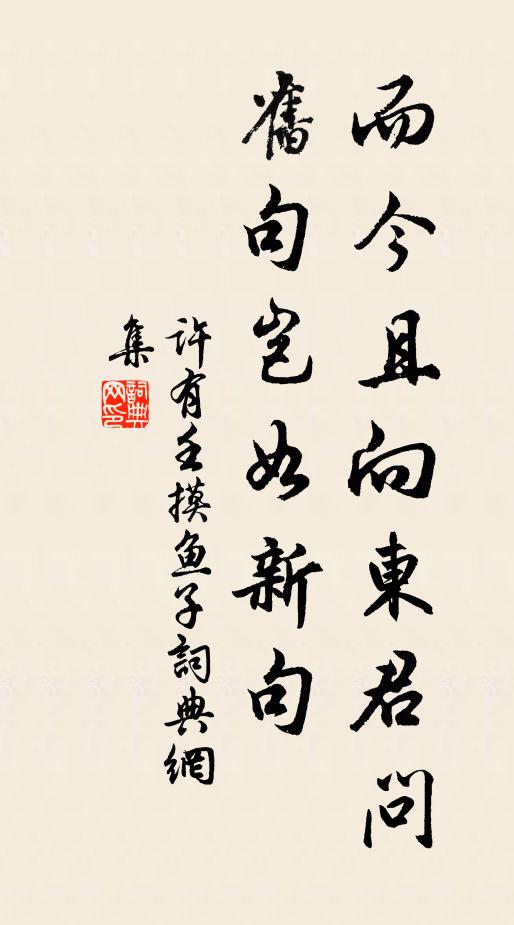 而今且向東君問
舊句豈如新句
許有壬摸鱼子詞典網
集
詞典
网印